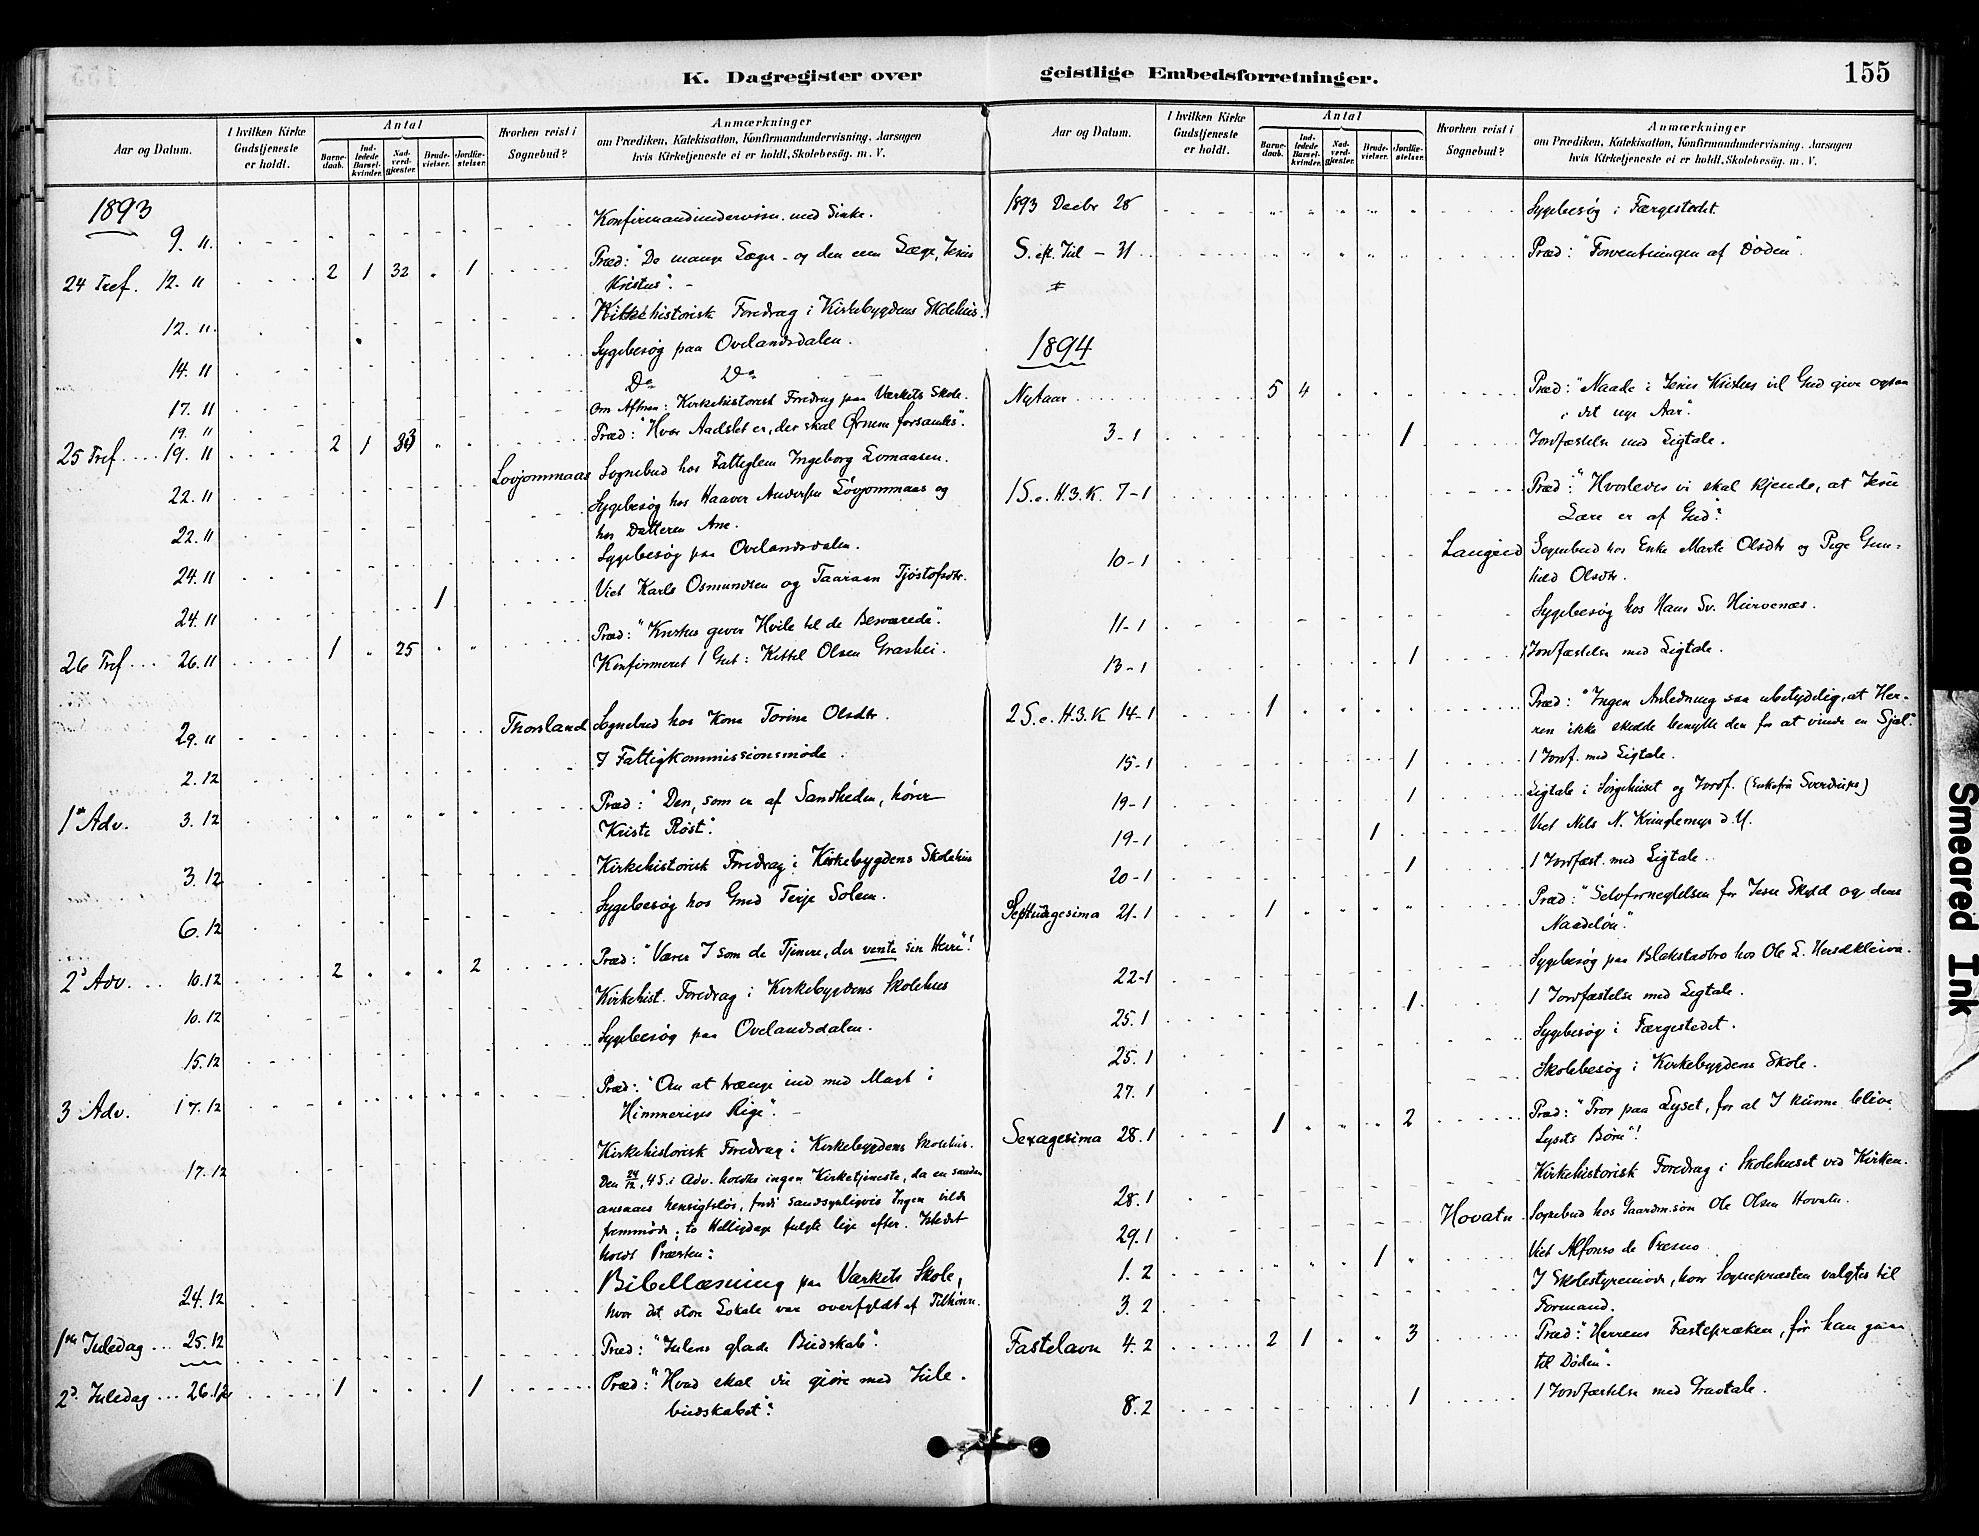 K. Dagregister over
Aar og Datum.
I hvilken Kirke Gudstjeneste er holdt.
Antal
Barnedaab.
Indledede Barselkvinder.
Nadverdgjæster.
Brudevielser.
Jordfæstelser.
Hvorhen reist i Sognebud?
Anmærkninger
om Prædiken, Katekisation, Konfirmandundervisning, Aarsagen
hvis Kirketjeneste ei er holdt, Skolebesög. m. V.
1893
9. 11 Konfirmandundervisn. med
24 Tref. 12. 11 2 1 32 " 1 Præd: "De mange Læger - og den ene Læge, Jesus
Kristus". -
12. 11 Kirkehistorisk Foredrag i Kirkebygdens Skolehus.
14. 11 Sygebesøg paa Ovelandsdalen.
17. 11 Do Do
19. 11 Om Aftnen: Kirkehistorisk Foredrag paa Værkets Skole.
25 Tref 19. 11 2 1 33 " " Præd: "Hvor Aadslet er, der skal Ørnene forsamles".
22. 11 Lovjommaas Sognebud hos Fattiglem Ingeborg
22. 11 Sygebesøg hos Haaver Andersen Løvjommaas og
hos Datteren Ane.
24. 11 Sygebesøg paa Ovelandsdalen.
24. 11 1 Viet Karls Osmundsen og Taaraan Tjöstofsdtr.
26 Tref 26. 11 1 " 25 " " Præd: "Kristus giver Hvile til de Besværede".
Konfirmeret 1 Gut: Kittil Olsen Grashei.
29. 11 Thorsland Sognebud hos Kone Torine Olsdtr.
2. 12 I Fattigkommissionsmøde.
1ste Adv. 3. 12 " " " " " Præd: "Den, som er af Sandheden, hører
Kristi Røst".
3. 12 Kirkehistorisk Foredrag i Kirkebygdens Skolehus
6. 12 Sygebesøg hos Gmd Terje Solem.
2d Adv. 10. 12 2 " " " 2 Præd: "Værer I som de Tjenere, der vente sin Herre"!
10. 12 Kirkehist. Foredrag i Kirkebygdens Skolehus
15. 12 Sygebesøg paa Ovelandsdalen.
3 Adv. 17. 12 " " " " " Præd: "Om at trænge ind med Magt i
Himmeriges Rige". -
17. 12 Kirkehistorisk Foredrag i Kirkebygdens Skolehus.
Den 24/12, 4 S. i Adv. holdtes ingen Kirketjeneste, da en saadan
ansaaes hensigtsløs, fordi sandsynligvis Ingen vilde
fremmøde; to Helligdage fulgte lige efter. Istedet
holdt Præsten:
24. 12 Bibellæsning paa Værkets Skole,
hvor det store Lokale var overfyldt af Tilhørere.
1ste Juledag 25. 12 Præd: "Julens glade Budskab".
2d Juledag 26. 12 1 " " " 1 Præd: "Hvad skal vi gjøre med Jule-
budskabet"?
geistlige Embedsforretninger.
155
Aar og Datum.
I hvilken Kirke Gudstjeneste er holdt.
Antal
Barnedaab.
Indledede Barselkvinder.
Nadverdgjæster.
Brudevielser.
Jordfæstelser.
Hvorhen reist i Sognebud?
Anmærkninger
om Prædiken, Katekisation, Konfirmandundervisning, Aarsagen
hvis Kirketjeneste ei er holdt, Skolebesög. m. V.
1893 Decbr 28 " " " " " Sygebesøg i Færgestedet.
S. eft. Jul - 31 " " " " " Præd: "Forventningen af Døden".
1894
Nytaar 5 4 " " " Præd: "Naade i Jesus Kristus vil Gud give ogsaa
i det nye Aar".
3 - 1 1 Jordfæstelse med Ligtale.
1 S. e. H. 3. K. 7 - 1 Præd: "Hvorledes vi skal kjende, at Jesu
Lære er af Gud".
10 - 1 Langeid Sognebud hos Enke Marte Olsdtr og Pige Gun-
hild Olsdtr.
11 - 1 Sygebesøg hos Hans Sv.
13 - 1 1 1 Jordfæstelse med Ligtale.
2 S. e. H. 3. K 14 - 1 1 " " " " Præd: "Ingen Anledning saa ubetydelig, at Her-
ren ikke skulde benytte den for at vinde en Sjæl".
15 - 1 1 1 Jordf. med Ligtale.
19 - 1 1 Ligtale i Sørgehuset og Jordf. (Enkefru Sverdrups)
19 - 1 1 Viet Nils N. Kringlemyr d. Y.
20 - 1 1 1 Jordfæst. med Ligtale.
Septuagesima 21 - 1 1 " " " " Præd: "Selvfornegtelsen for Jesu Skyld og dens
Naadeløn".
22 - 1 Sygebesøg paa Blakstadbro hos Ole L.
25. 1 1 1 Jordfæstelse med Ligtale.
25. 1 Sygebesøg i Færgestedet.
27. 1 Skolebesøg i Kirkebygdens Skole.
Sexagesima 28. 1 1 " " " 2 Præd: "Tror paa Lyset, for at I kunne blive
Lysets Børn"!
28. 1 Kirkehistorisk Foredrag i Skolehuset ved Kirken.
29. 1 Hovatn Sognebud hos Gaardm.søn Ole Olsen Hovatn.
1. 2 1 Viet Alfonso de
3. 2 I Skolestyremøde, hvor Sognepræsten valgtes til
Formand.
Fastelavn 4. 2 2 1 " " 3 Præd: "Herrens Fastepræken, før han gaar
til Døden".
8. 2 1 1 Jordfæstelse med Gravtale.
Smeared Ink